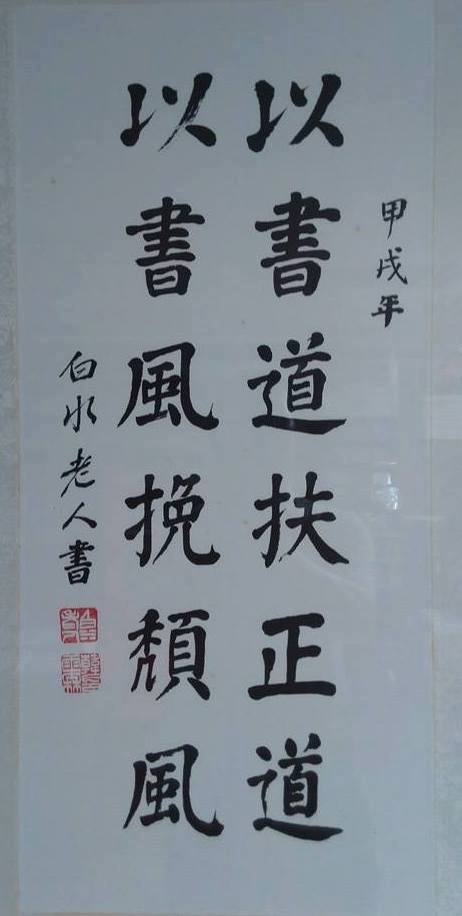 甲戌年
以書道扶正道
以書風挽頹風
白水老人書